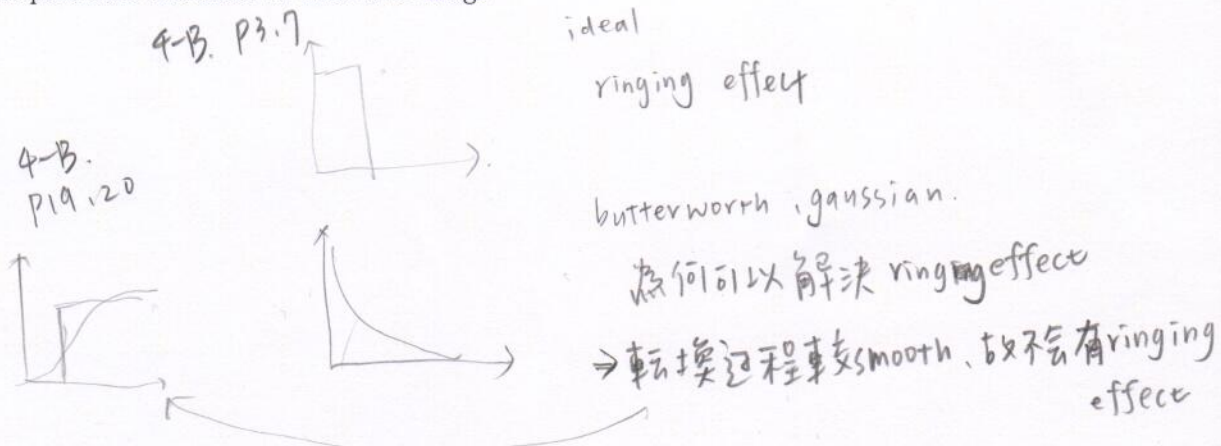 4-B. P3.7
ideal
ringing effect
4-B.
P19.20
butterworth、gaussian.
為何可以解決 ringing effect
⇒ 転換过程較smooth、故不会有ringing
effect